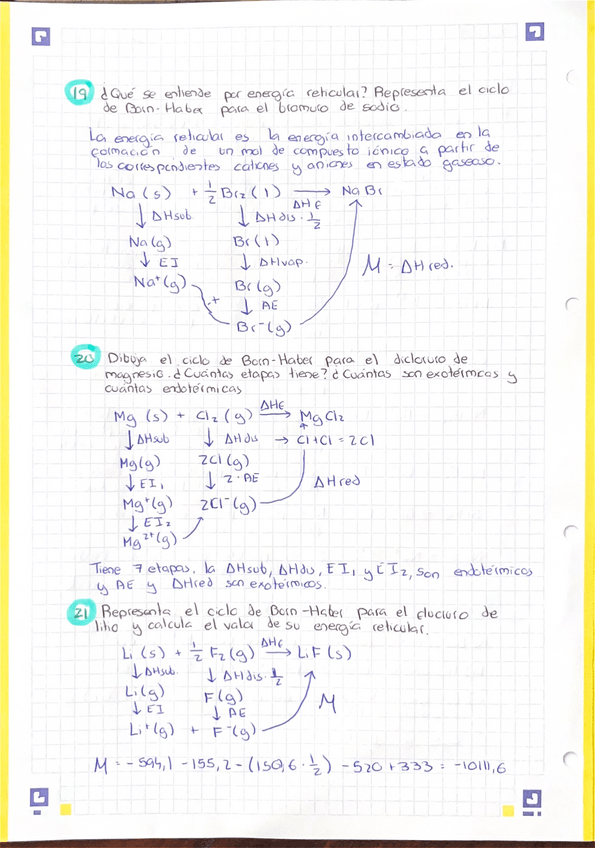 19 ¿Qué se entiende por energía reticular? Representa el ciclo
de Born-Haber para el bromuro de sodio.
La energía reticular es la energía intercambiada en la
formación de un mol de compuesto iónico a partir de
los correspondientes cationes y aniones en estado gaseoso.
Na (s) + 1/2 Br₂ (l) → NaBr
ΔHf
↓ ΔHsub ↓ ΔHdis · 1/2
Na(g) Br(l)
↓ EI ↓ ΔHvap. M = ΔHred.
Na⁺(g) Br(g)
+ ↓ AE
Br⁻(g)
20 Dibuja el ciclo de Born-Haber para el dicloruro de
magnesio. ¿Cuántas etapas tiene? ¿Cuántas son exotérmicas y
cuántas endotérmicas
Mg (s) + Cl₂ (g) ΔHf → MgCl₂
↓ ΔHsub ↓ ΔHdis → Cl+Cl = 2Cl
Mg(g) 2Cl (g)
↓ EI₁ ↓ 2·AE ΔHred
Mg⁺(g) 2Cl⁻(g)
↓ EI₂
Mg²⁺(g)
Tiene 7 etapas, la ΔHsub, ΔHdis, EI₁ y EI₂, son endotérmicos
y AE y ΔHred son exotérmicos.
21 Representa el ciclo de Born-Haber para el fluoruro de
litio y calcula el valor de su energía reticular.
Li (s) + 1/2 F₂(g) ΔHf → LiF(s)
↓ ΔHsub. ↓ ΔHdis. 1/2
Li(g) F(g)
↓ EI ↓ AE M
Li⁺(g) + F⁻(g)
M = -594,1 -155,2 -(150,6 · 1/2) -520 +333 = -1011,6